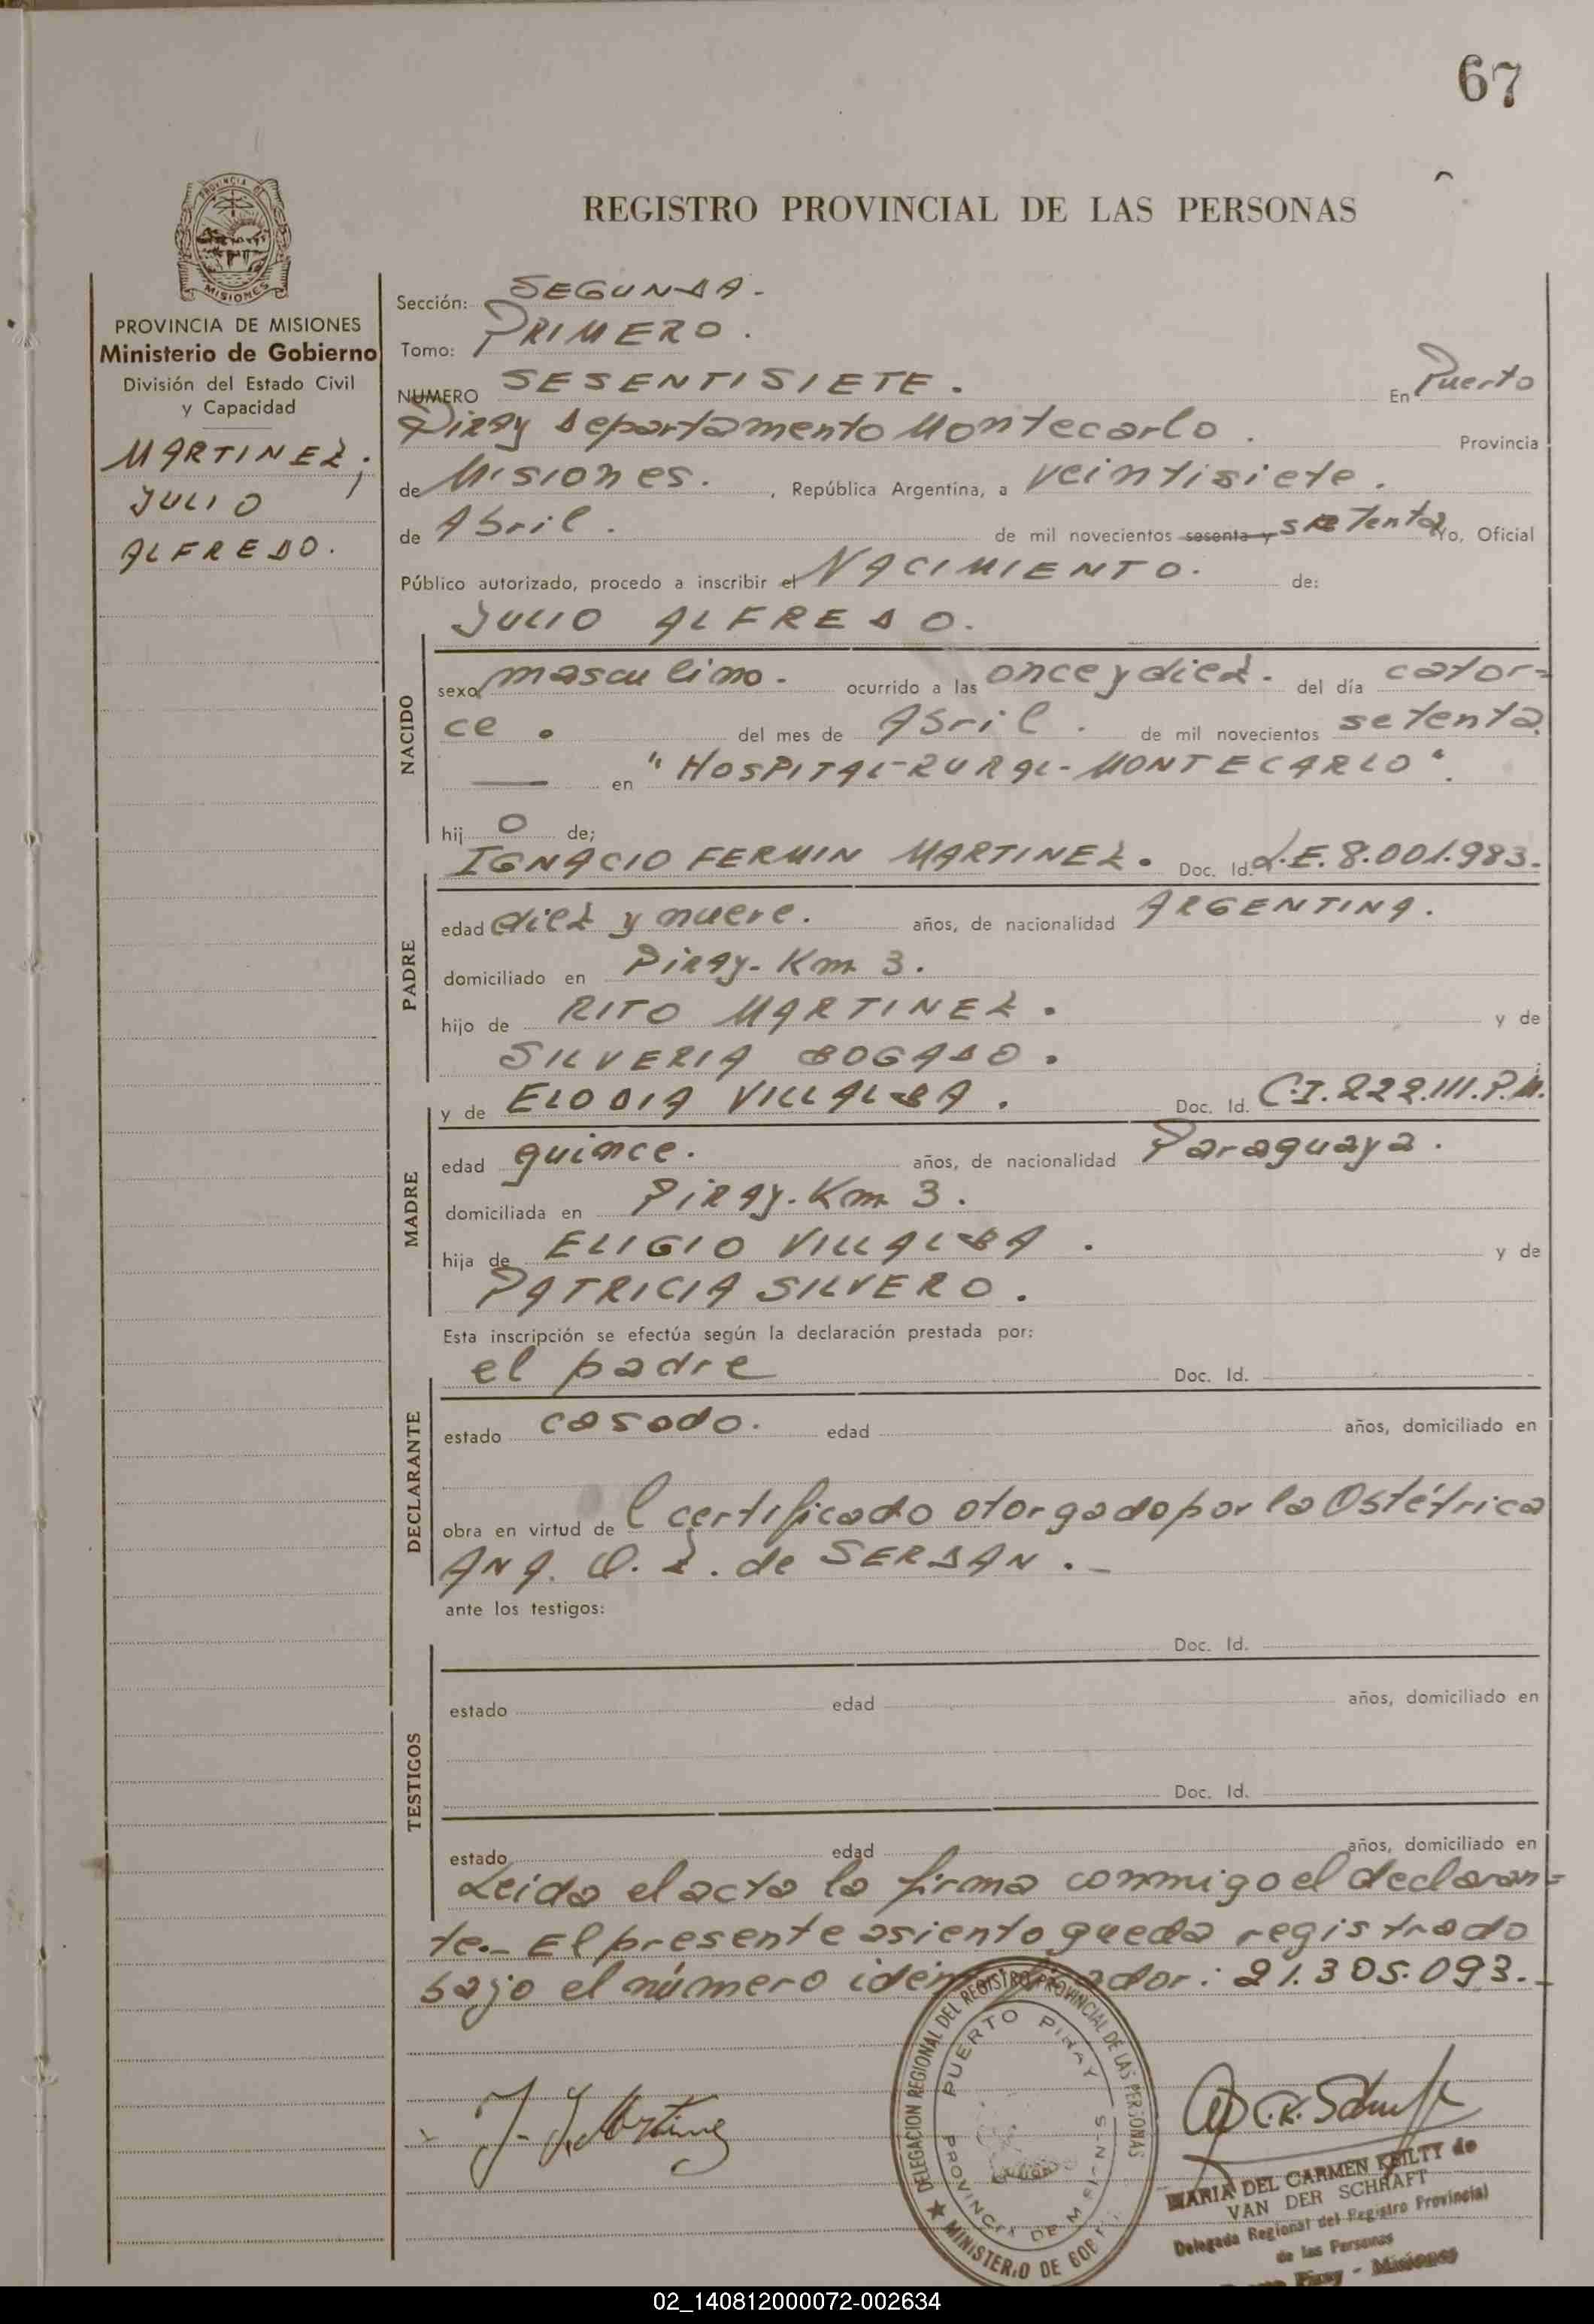 67
REGISTRO PROVINCIAL DE LAS PERSONAS
PROVINCIA DE
MISIONES
PROVINCIA DE MISIONES
Ministerio de Gobierno
División del Estado Civil
y Capacidad
MARTINEZ;
JULIO
ALFREDO.
Sección: SEGUNDA.
Tomo: PRIMERO.
NUMERO SESENTISIETE. En Puerto
Piray Departamento Montecarlo. Provincia
de Misiones. , República Argentina, a veintisiete.
de Abril. de mil novecientos sesenta y setenta Yo, Oficial
Público autorizado, procedo a inscribir el NACIMIENTO. de:
JULIO ALFREDO.
NACIDO
sexo masculino. ocurrido a las once y diez. del día cator=
ce. del mes de Abril. de mil novecientos setenta.
— en "HOSPITAL-RURAL-MONTECARLO".
hij o de;
IGNACIO FERMIN MARTINEZ. Doc. Id. L.E. 8.001.983.
PADRE
edad diez y nueve. años, de nacionalidad ARGENTINA.
domiciliado en Piray-Km 3.
hijo de RITO MARTINEZ. y de
SILVERIA BOGADO.
y de ELODIA VILLALBA. Doc. Id. C.I. 222.111.P.M.
MADRE
edad quince. años, de nacionalidad Paraguaya.
domiciliada en Piray-Km 3.
hija de ELIGIO VILLALBA. y de
PATRICIA SILVERO.
Esta inscripción se efectúa según la declaración prestada por:
el padre Doc. Id.
DECLARANTE
estado casado. edad años, domiciliado en
obra en virtud de l certificado otorgado por la Ostétrica
ANA. O. Z. de SERDAN.-
ante los testigos:
Doc. Id.
TESTIGOS
estado edad años, domiciliado en
Doc. Id.
estado edad años, domiciliado en
Leida el acta la firma conmigo el declaran=
te.- El presente asiento queda registrado
bajo el número identificador: 21.305.093.-
DELEGACION REGIONAL DEL REGISTRO PROVINCIAL DE LAS PERSONAS
PUERTO PIRAY
PROVINCIA DE MISIONES
★ MINISTERIO DE GOB
MARIA DEL CARMEN KEILTY de
VAN DER SCHRAFT
Delegada Regional del Registro Provincial
de las Personas
Piray - Misiones
02_140812000072-002634